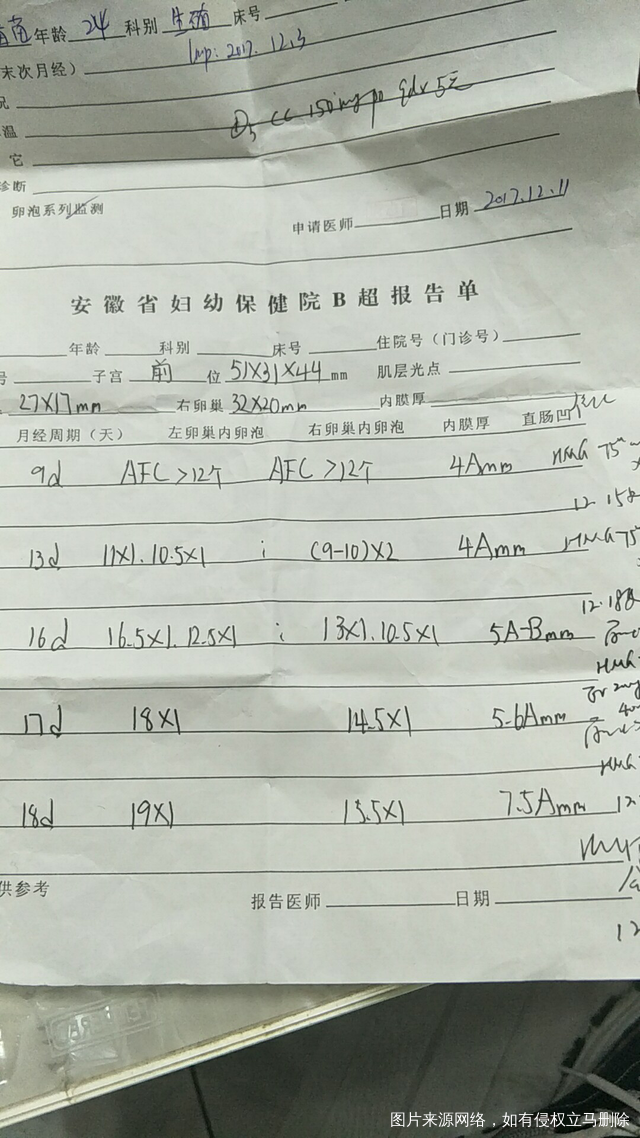 年龄 24 科别 生殖 床号
末次月经) lmp: 2017.12.3
况
温 D5 CC 150mg po qd x 5天
它
诊断
卵泡系列监测
申请医师 日期 2017.12.11
安徽省妇幼保健院B超报告单
年龄 科别 床号 住院号(门诊号)
号 子宫 前 位 51X31X44 mm 肌层光点
27X17mm 右卵巢 32X20mm 内膜厚
月经周期(天) 左卵巢内卵泡 右卵巢内卵泡 内膜厚 直肠凹
9d AFC>12个 AFC>12个 4Amm HMG 75
12.15
13d 11X1.10.5X1 ; (9-10)X2 4Amm HMG 75
12.18
16d 16.5X1.12.5X1 ; 13X1.10.5X1 5A-Bmm
HMG
17d 18X1 14.5X1 5-6Amm
HMG
18d 19X1 15.5X1 7.5Amm 12
供参考
报告医师 日期
12
图片来源网络,如有侵权立马删除